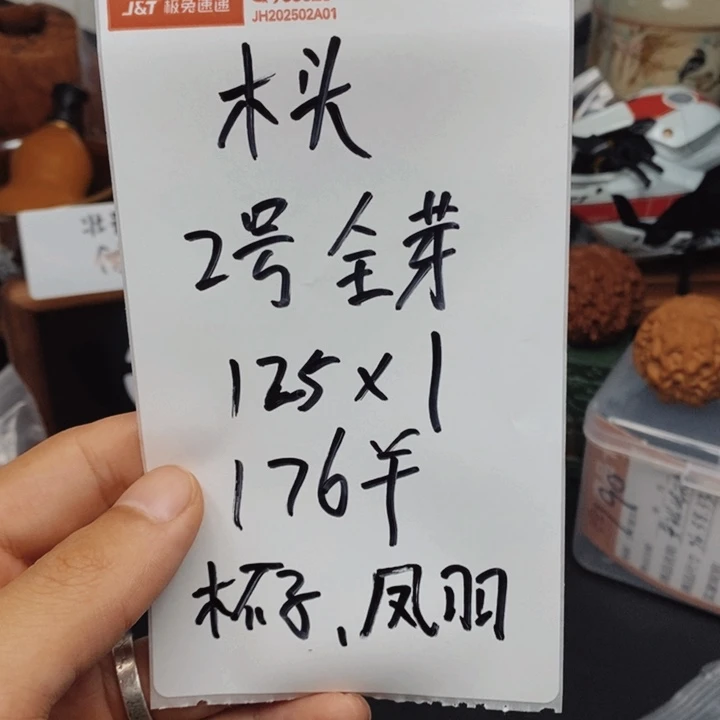 J&T 极兔速递
JH202502A01
木头
2号全芽
125×1
176羊
杯子、凤羽